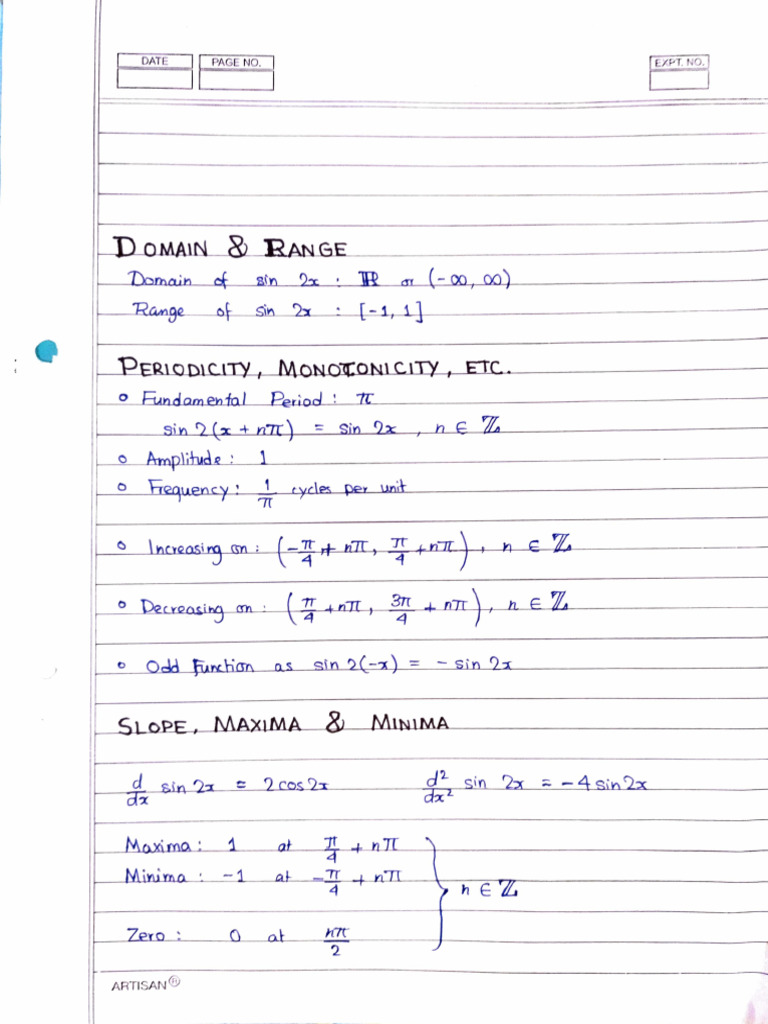 DATE PAGE NO. EXPT. NO.
DOMAIN & RANGE
Domain of sin 2x : ℝ or (-∞, ∞)
Range of sin 2x : [-1, 1]
PERIODICITY, MONOTONICITY, ETC.
o Fundamental Period : π
sin 2(x + nπ) = sin 2x , n ∈ ℤ
o Amplitude : 1
o Frequency : 1/π cycles per unit
o Increasing on : (-π/4 + nπ, π/4 + nπ) , n ∈ ℤ
o Decreasing on : (π/4 + nπ, 3π/4 + nπ) , n ∈ ℤ
o Odd Function as sin 2(-x) = - sin 2x
SLOPE, MAXIMA & MINIMA
d/dx sin 2x = 2 cos 2x d²/dx² sin 2x = -4 sin 2x
Maxima : 1 at π/4 + nπ
Minima : -1 at -π/4 + nπ } n ∈ ℤ
Zero : 0 at nπ/2
ARTISAN®